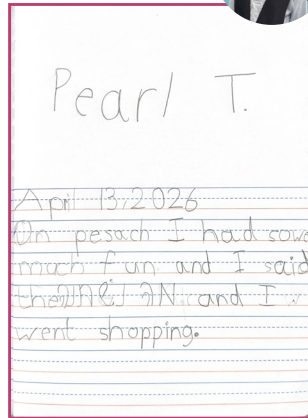 Pearl T.
April 13, 2026
On pesach I had sowe
much fun and I said
the and I
went shopping.